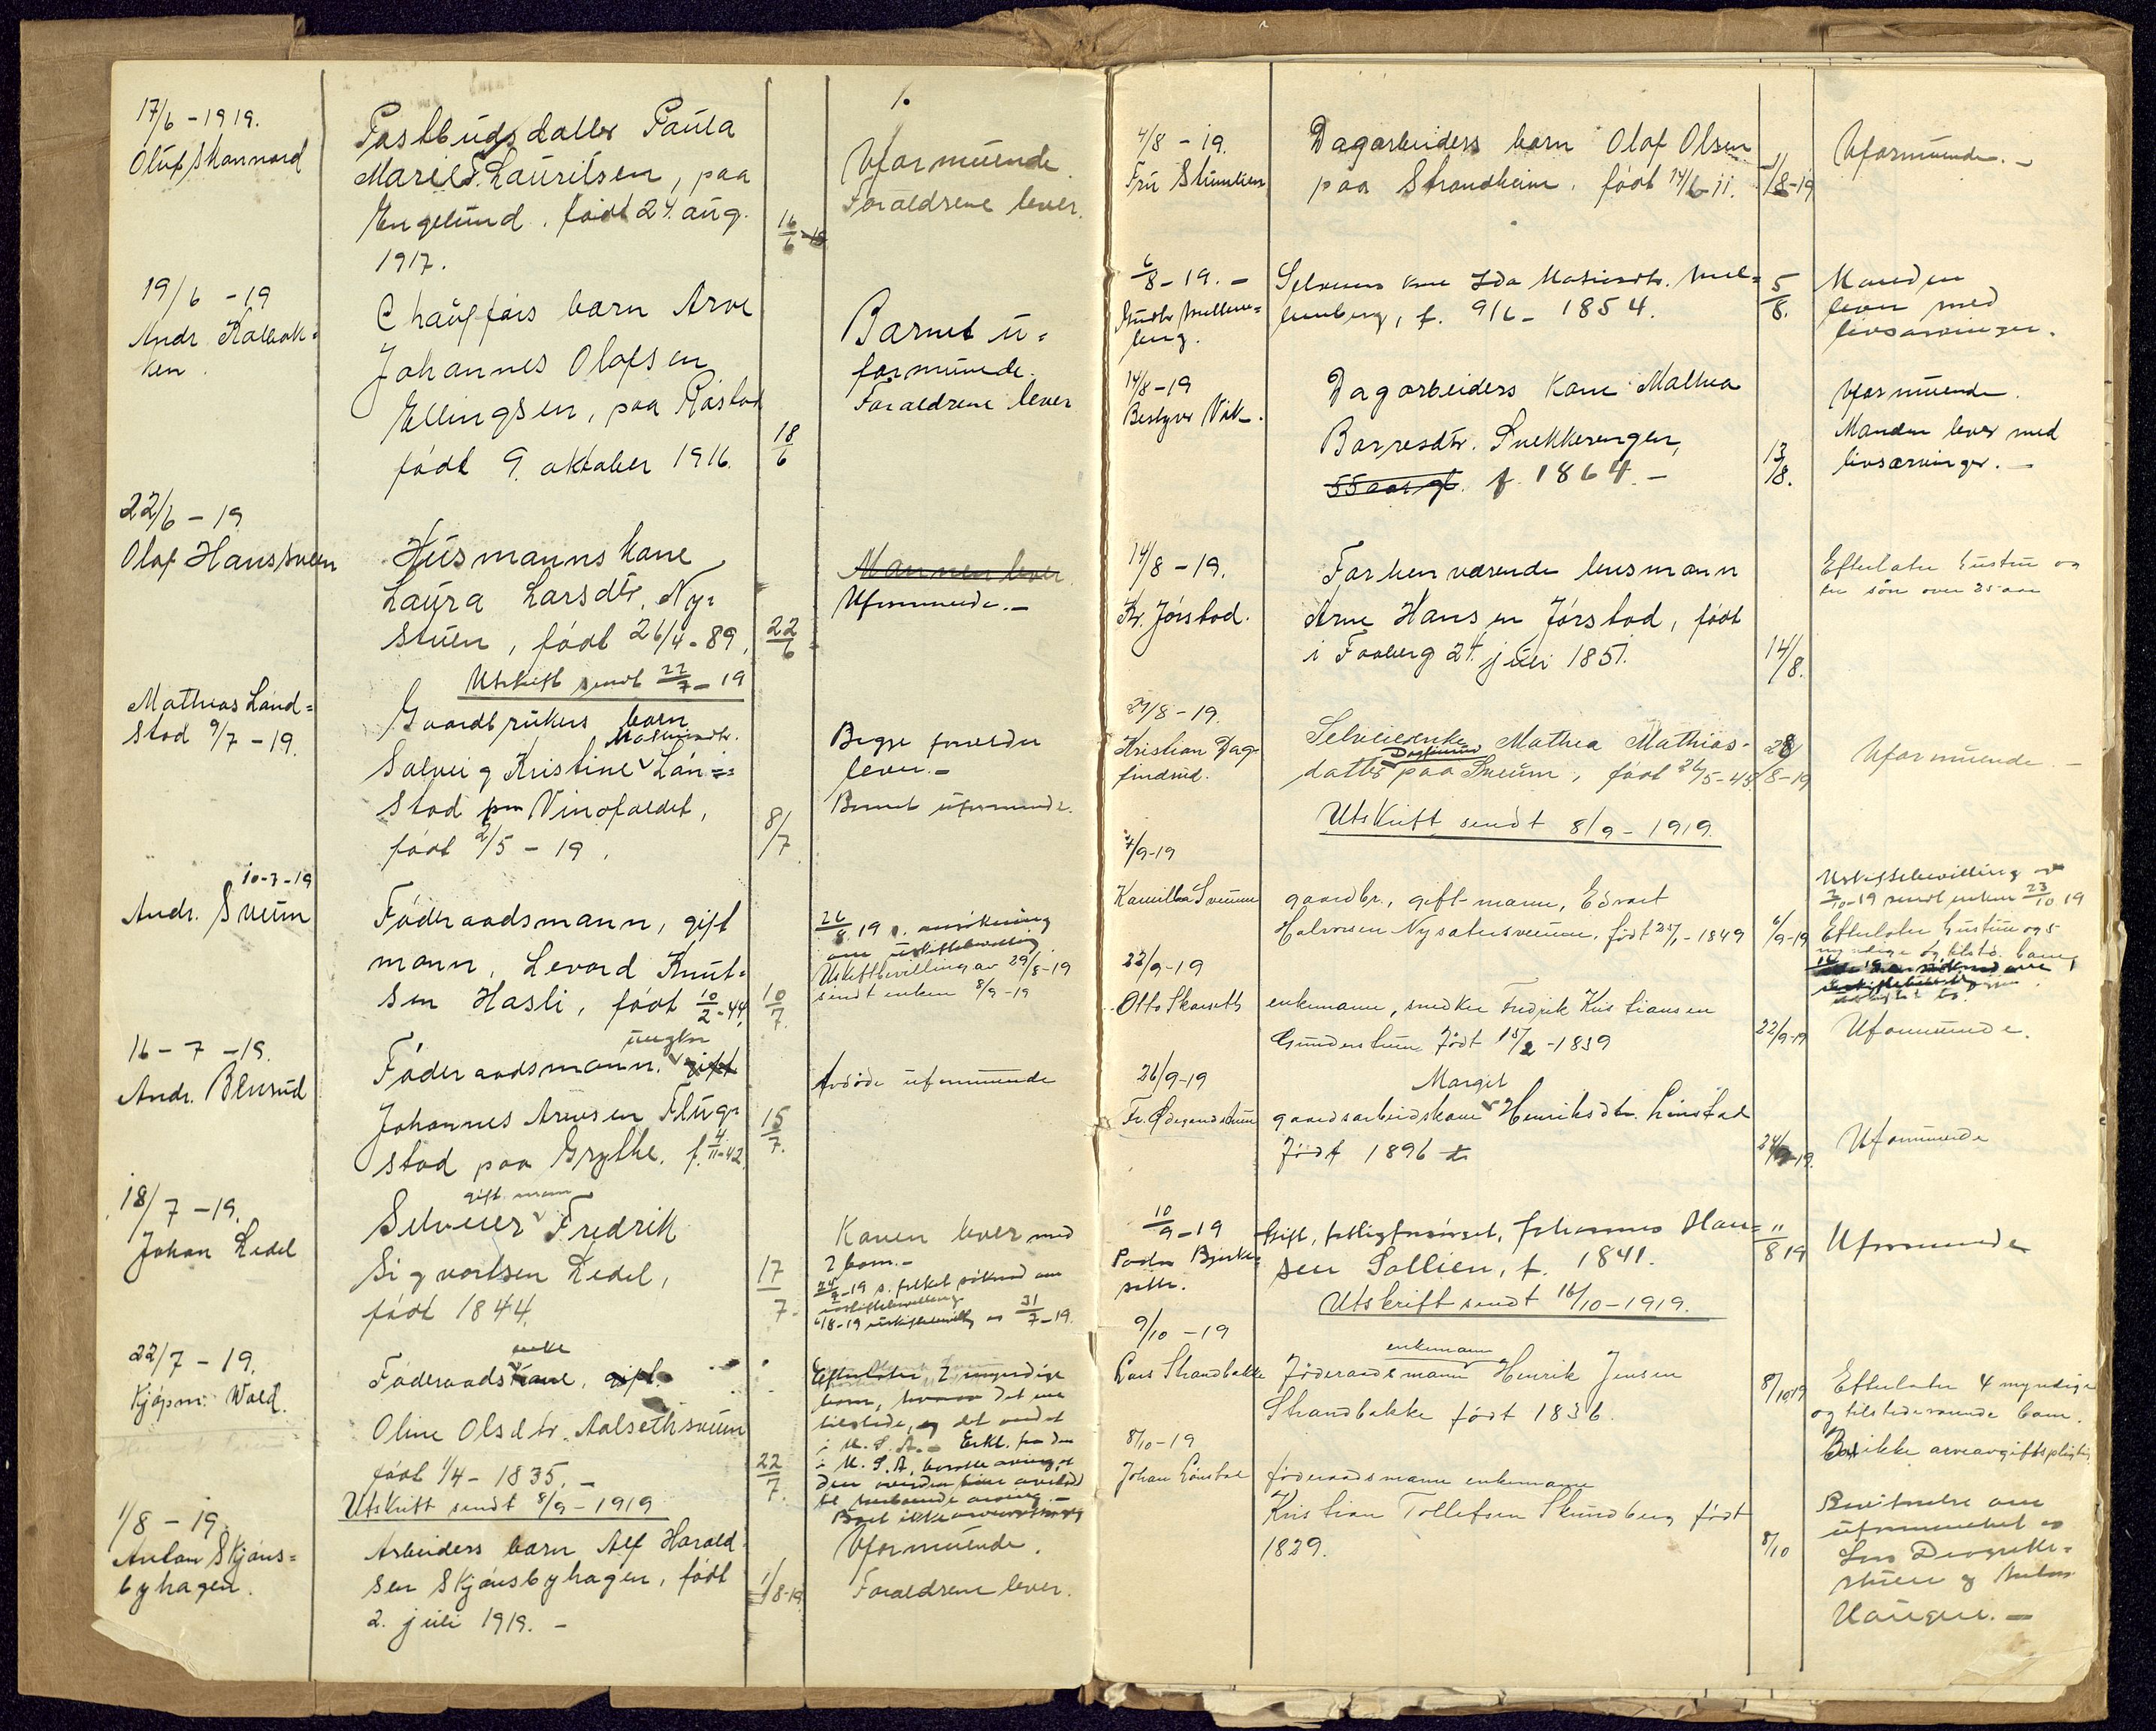 1.
17/6 - 1919.
Oluf Skannord
Postbuds datter Paula
Marie F. Lauritsen, paa
Engelund, födt 24. aug.
1917.
16/6
Uformuende.
Foraeldrene lever.
19/6 - 19
Andr. Kolbak=
ken.
Chaufförs barn Arve
Johannes Olafsen
Ellingsen, paa Röstad
födt 9. oktober 1916.
18/6
Barnet u=
formuende.
Foraeldrene lever
22/6 - 19
Olaf Hanssveen
Husmanns kone
Laura Larsdtr. Ny=
stuen, födt 26/4 - 89.
22/6
Mannen lever.
Uformuende. -
Utskrift sendt 22/7 - 19
Mathias Lund=
stad 9/7 - 19.
Gaardbrukers barn
Solveig Kristine Mathiasdtr. Lün=
stad paa Vinofaldet,
födt 2/5 - 19.
8/7
Begge foreldre
lever. -
Barnet uformuende.
10-7-19
Andr. Sveum
Föderaadsmann, gift
mann, Levord Knut=
sen Hasli, födt 10/2 - 44.
10/7.
26/8 19 s. ansökning
om uskiftebevilling
Uskiftbevilling av 29/8 - 19
sendt enken 8/9 - 19
16 - 7 - 19.
Andr. Blusud
Föderaadsmann, ungkar gift
Johannes Arnesen Flug=
stad paa Grythe, f. 4/11 - 42.
15/7.
Avdöde uformuende
18/7 - 19.
Johan Ledel
Selveier gift mann Fredrik
Sigvartsen Ledel,
födt 1844.
17/7.
Konen lever med
2 barn. -
24/7 - 19 s. folket söknad om
uskiftebevilling
6/8 - 19 uskiftebevillg av 31/7 - 19.
22/7 - 19.
Kjöpm. Wold.
Föderaads enke kone, gift
Oline Olsdtr. Aalsethsveum
födt 1/4 - 1835. -
22/7.
Efterlater 2 myndige
barn, hvorav det ene
tilstede, og det andet
i U.S.A. - Erkl. fra den
i U.S.A.
Boet ikke
Utskrift sendt 8/9 - 1919
1/8 - 19.
Anton Skjöns=
byhagen.
Arbeiders barn Alf Harald=
sen Skjönsbyhagen, födt
2. juli 1919. -
1/8-19.
Uformuende.
Foraeldrene lever.
4/8 - 19.
Fru Stumlien
Dagarbeiders barn Olaf Olsen
paa Strandheim, födt 14/6 - 11.
1/8-19
Uformuende. -
6/8 - 19. -
Gudbr. Mellem=
berg.
Selveiers kone Ida Mathiasdtr. Mel=
lemberg, f. 9/6 - 1854.
5/8.
Manden
lever med
livsarvinger.
14/8 - 19
Bestyrer Vik.
Dagarbeiders kone Mathea
Borresdtr. Snekkerengen,
55 aar gl. f. 1864. -
13/8.
Uformuende.
Manden lever med
livsarvinger. -
14/8 - 19.
Kr. Jörstad.
Forhenværende lensmann
Arne Hansen Jörstad, födt
i Faaberg 24. juli 1851.
14/8.
Efterlater hustru og
en sön over 25 aar
29/8 - 19.
Kristian Dag=
findrud.
Selveierenke Mathea Mathias=
datter Dagfinrud paa Sveum, födt 26/5 - 45.
28/8-19
Uformuende. -
Utskrift sendt 8/9 - 1919.
7/9-19
Kamilla Sveum
gaardbr., gift mann, Edvart
Halvorsen Nysætersveum, födt 25/1 - 1849
6/9-19
Uskiftebevilling av
7/10-19 sendt enken 23/10 19
Efterlater hustru og 5
myndige og tilsted. barn
22/9-19
Otto Skarseth
enkemann, snedker Fredrik Kristiansen
Gunderstuen, födt 15/2 - 1839
22/9-19
Uformuende.
26/9-19
Fr. Ödegaardstuen
gaardsarbeiderkone Marget Henriksdtr. Linstad
Född 1896
24/9-19.
Uformuende
10/9 - 19
Peder Bjerke=
seter.
Gift, fattigforsörget, Johannes Han=
sen Sollien, f. 1841.
11/8 19
Uformuende
Utskrift sendt 16/10 - 1919.
9/10 - 19
Lars Strandbakke
Föderaadsmann enkemann Henrik Jensen
Strandbakke född 1836.
8/10 19
Efterlater 4 myndige
og tilstedeværende barn.
Boet ikke arveavgiftspligtig
8/10 - 19
Johan Lönstad
föderaadsmann enkemann
Kristian Tollefsen Skundberg födt
1829.
8/10
Bevitnelse om
uformuenhet av
Lars
stuen og Anton
Haugen. -